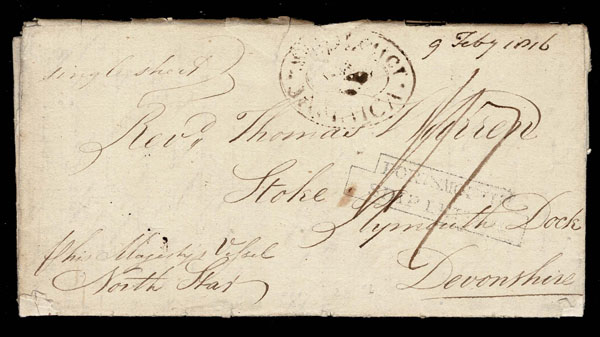 9 Feby 1816
single sheet
Revd. Thomas Warren
Stoke
Plymouth Dock
Devonshire
PORTSMOUTH
SHIP
his Majestys
North Star